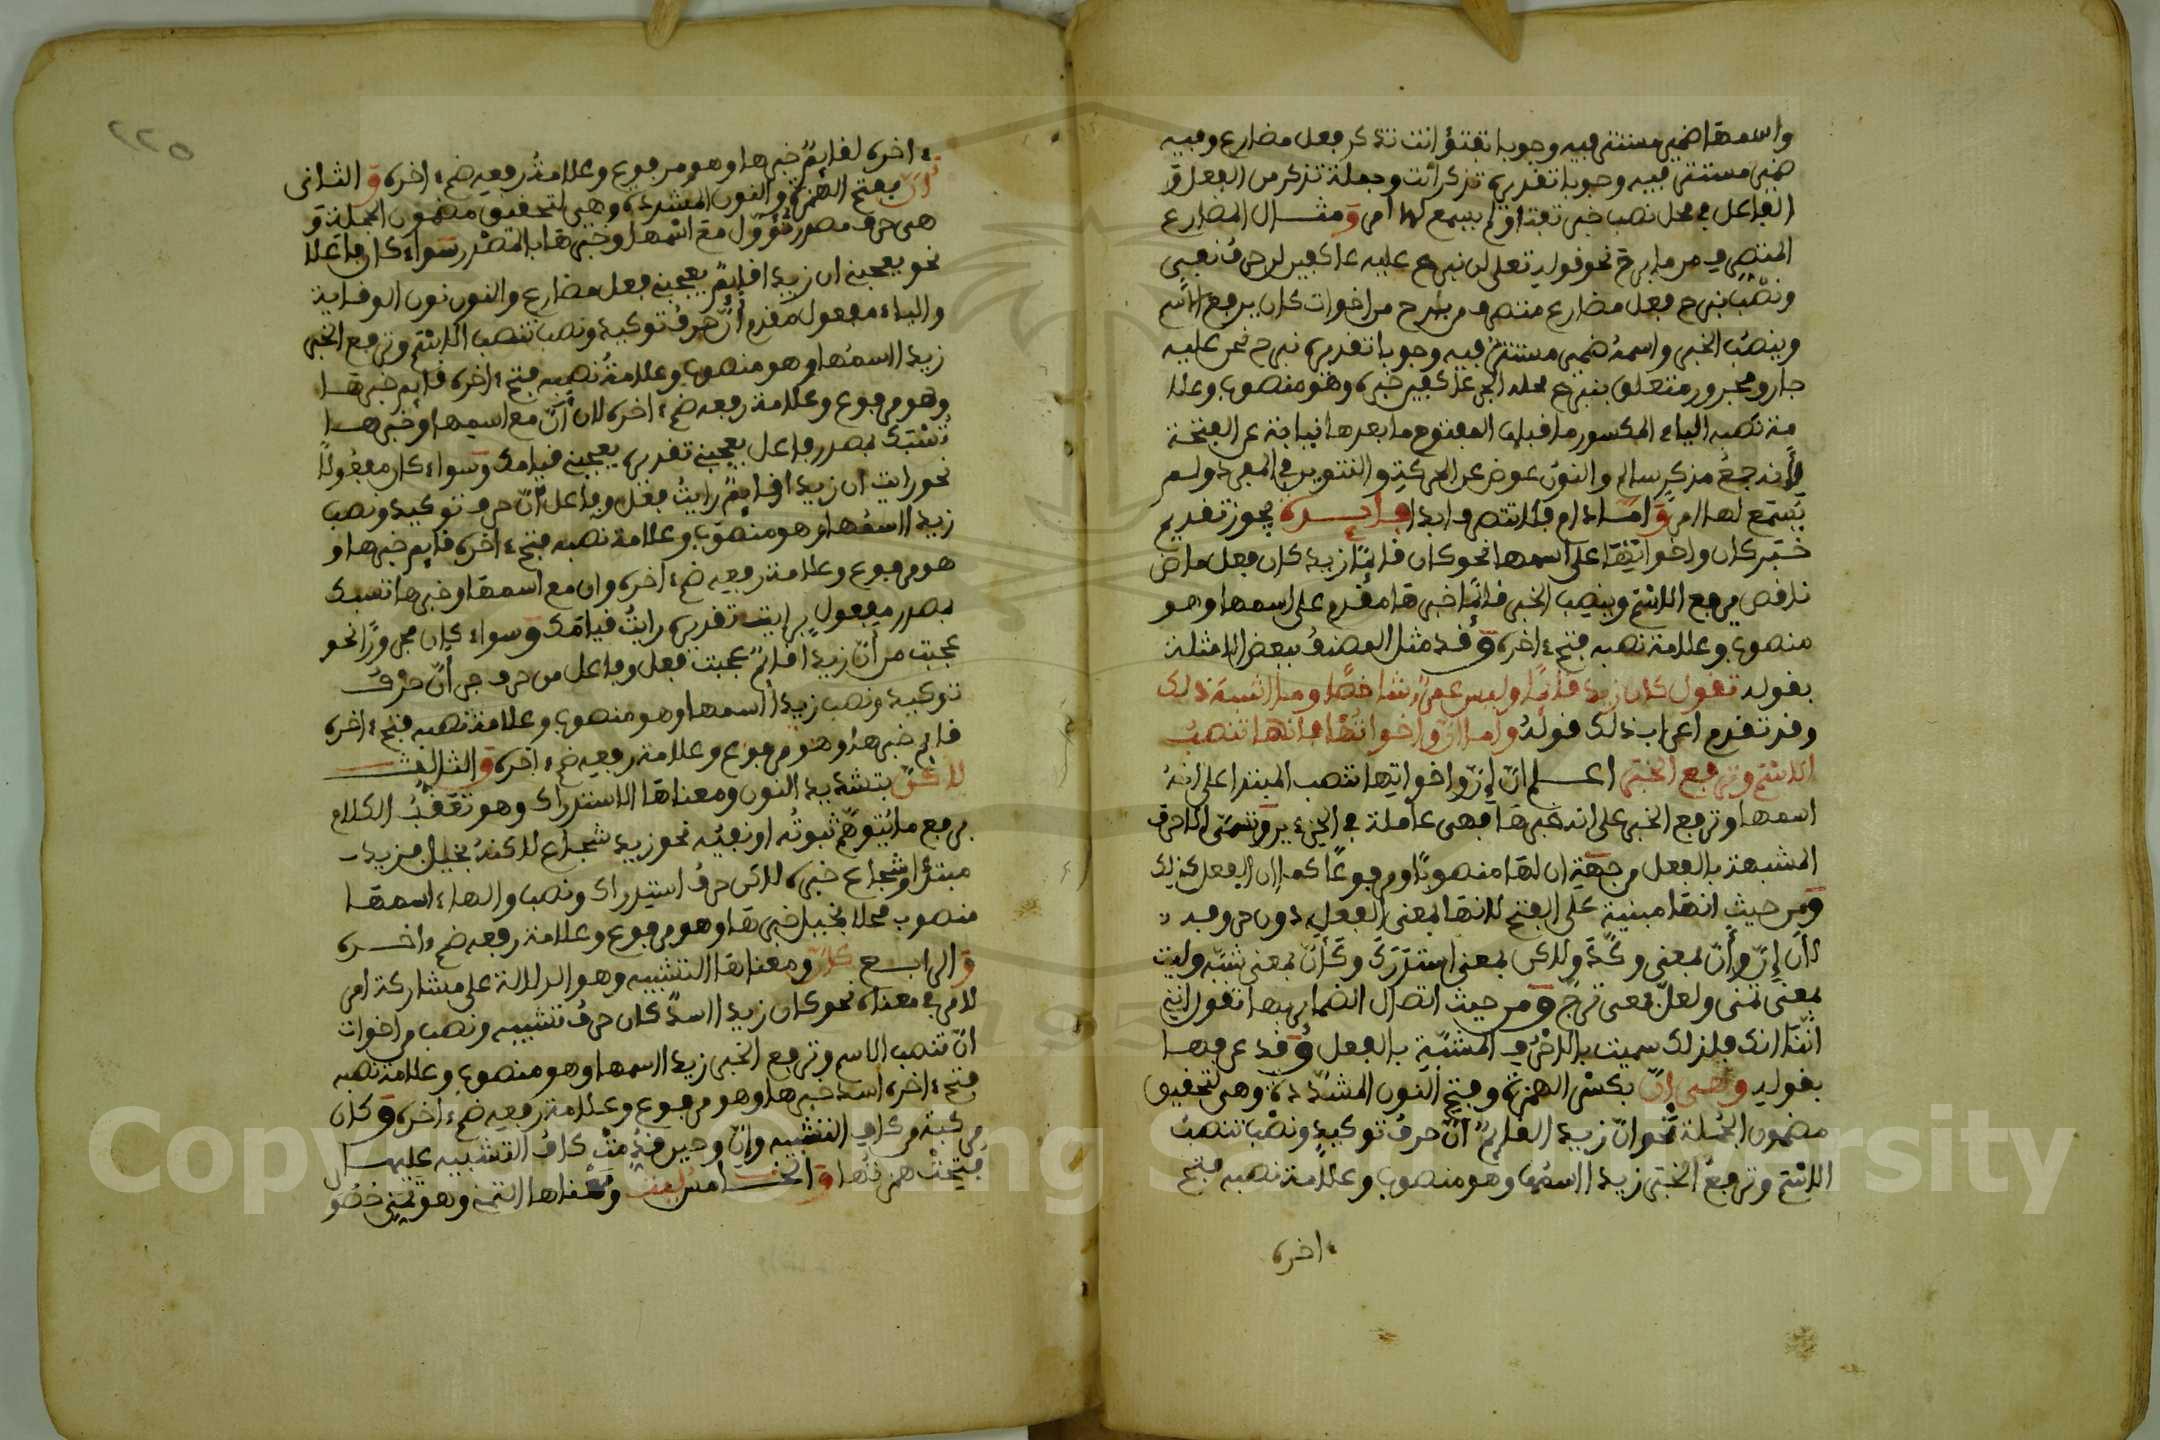 واسمها ضمير مستتر فيه وجوبا تفتؤ انت تذكر فعل مضارع وفيه
ضمير مستتر فيه وجوبا تقديره تذكر أنت وجملة تذكر من الفعل و
الفاعل في محل نصب خبر تفتا ولم يسمع لها امر ومثال المضارع
المتصرف من ما برح نحو قوله تعلى لن نبرح عليه عاكفين لن حرف نفي
ونصب نبرح فعل مضارع متصرف من برح من اخوات كان يرفع الاسم
وينصب الخبر واسمه ضمير مستتر فيه وجوبا تقديره نبرح نحن عليه
جار ومجرور متعلق بنبرح محله الجر عاكفين خبره وهو منصوب وعلا
مة نصبه الياء المكسور ما قبلها المفتوح ما بعدها نيابة عن الفتحة
لأنه جمع مذكر سالم والنون عوض عن الحركة والتنوين في المفرد ولم
يسمع لها امر واما دام فلا تتصرف ابدا فايدة يجوز تقديم
خبر كان واخواتها على اسمها نحو كان قائما زيد كان فعل ماض
ناقص يرفع الاسم وينصب الخبر قائما خبرها مقدم على اسمها وهو
منصوب وعلامة نصبه فتحة اخره وقد مثل المصنف ببعض الامثلة
بقوله تقول كان زيد قائما وليس عمرو شاخصا وما اشبه ذلك
وقد تقدم اعراب ذلك قوله واما ان واخواتها فانها تنصب
الاسم وترفع الخبر اعلم ان إن واخواتها تنصب المبتدا على انه
اسمها وترفع الخبر على انه خبرها فهي عاملة في الجزءين وتسمى الاحرف
المشبهة بالفعل من جهة ان لها منصوبا ومرفوعا كما ان الفعل كذلك
ومن حيث انها مبنية على الفتح لانها بمعنى الفعل دون حروفه
لان إن وأن بمعنى وكد ولاكن بمعنى استدرك وكأن بمعنى شبه وليت
بمعنى تمنى ولعل بمعنى ترج ومن حيث اتصال الضمائر بها تقول انني
اننا انك فلذلك سميت بالاحرف المشبهة بالفعل وقد عرفها
بقوله وهي إن بكسر الهمزة وفتح النون المشددة وهي لتحقيق
مضمون الجملة نحو ان زيدا لقائم ان حرف توكيد ونصب تنصب
الاسم وترفع الخبر زيدا اسمها وهو منصوب وعلامة نصبه فتح
ة اخره
٢٢٥
ة اخره لقائم خبرها وهو مرفوع وعلامة رفعه ضمة اخره والثانى
أن بفتح الهمزة والنون المشددة وهي لتحقيق مضمون الجملة و
هي حرف مصدر تؤول مع اسمها وخبرها بالمصدر سواء كان فاعلا
نحو يعجبني ان زيدا قائم يعجبني فعل مضارع والنون نون الوقاية
والياء مفعول مقدم أن حرف توكيد ونصب تنصب الاسم وترفع الخبر
زيدا اسمها وهو منصوب وعلامة نصبه فتحة اخره قايم خبرها
وهو مرفوع وعلامة رفعه ضمة اخره لان أن مع اسمها وخبرها
تنسبك بمصدر فاعل يعجبني تقديره يعجبني قيامك وسواء كان مفعولا
نحو رايت ان زيدا قايم رايت فعل وفاعل أن حرف توكيد ونصب
زيدا اسمها وهو منصوب وعلامة نصبه فتحة اخره قايم خبرها و
هو مرفوع وعلامة رفعه ضمة اخره وان مع اسمها وخبرها تنسبك
بمصدر مفعول برايت تقديره رايت قيامك وسواء كان مجرورا نحو
عجبت من أن زيدا قايم عجبت فعل وفاعل من حرف جر أن حرف
توكيد ونصب زيدا اسمها وهو منصوب وعلامة نصبه فتحة اخره
قايم خبرها وهو مرفوع وعلامة رفعه ضمة اخره والثالث
لاكن بتشديد النون ومعناها الاستدراك وهو تعقب الكلام
برفع ما يتوهم ثبوته او نفيه نحو زيد شجاع لاكنه بخيل فزيد
مبتدأ وشجاع خبره لاكن حرف استدراك ونصب والهاء اسمها
منصوب محلا بخيل خبرها وهو مرفوع وعلامة رفعه ضمة اخره
والرابع كأن ومعناها التشبيه وهو الدلالة على مشاركة امر
لامر في معناه نحو كان زيدا اسد كان حرف تشبيه ونصب من اخوات
ان تنصب الاسم وترفع الخبر زيدا اسمها وهو منصوب وعلامة نصبه
فتحة اخره اسد خبرها وهو مرفوع وعلامة رفعه ضمة اخره وكأن
مركبة من كاف التشبيه وإن وحين قدمت كاف التشبيه عليها
فتحت همزتها والخامس ليت ومعناها التمني وهو تمني حصو